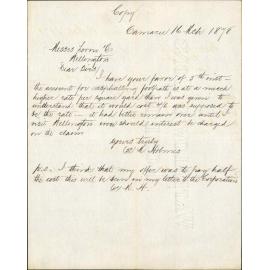 Copy
Oamaru 16 Mch 1878
Messrs Loton &
Wellington
Dear Sirs,
I have your favor of 5th inst -
the account for asphalting footpath is at a much
higher rate per square yard than I was given to
understand that it would cost 4/6 was supposed to
be the rate - it had better remain over until I
visit Wellington even should interest be charged
on the claim
Yours truly
Holmes
p.s. I think that my offer was to pay half
the cost this will be seen in my letter to the Corporation
H.